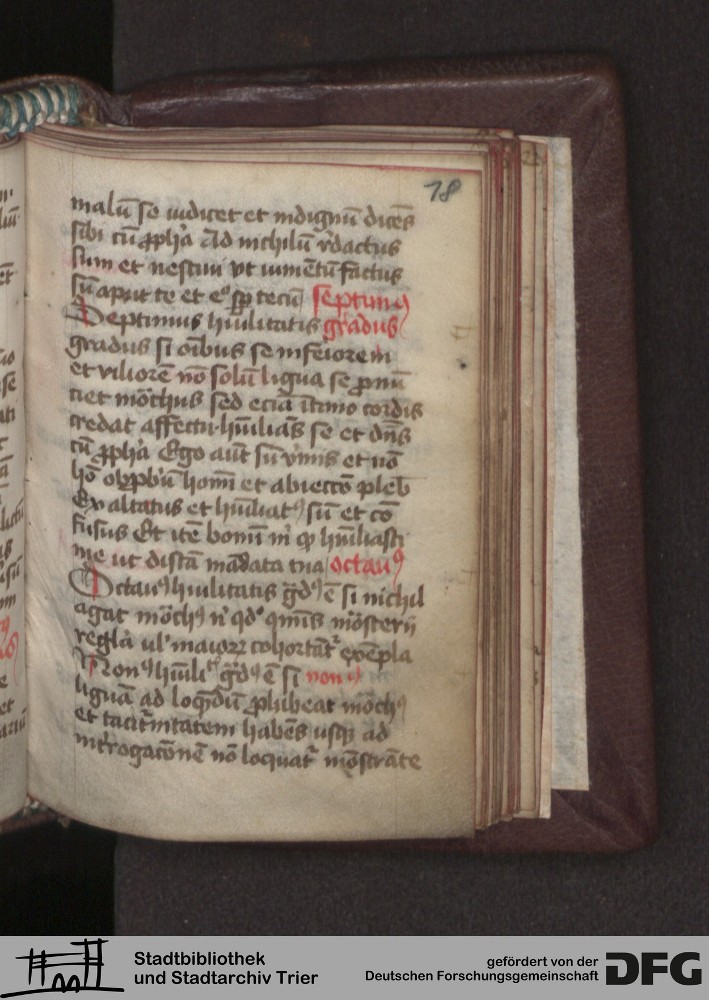 18
malū se iudicet et indignū dicēs
sibi cū ꝓph̄a Ad nichilū r̄dactus
sum et nesciui vt iumētū factus
sū aput te et eº sp̄ tecū septimꝰ
Septimus hūilitatis gradus
gradus si oībus se inferiorem
et viliorē nō solū ligua se ꝓnū
ciet mōchus sed eciā ītimo cordis
credat affectu hūiliās se et dn̄s
cū ꝓph̄a Ego aūt sū v̄mis et nō
hō obp̄bū homī et abieccō pleb̄
Exaltatus et hūiliatꝰ sū et cō
fusus Et itē bonū m̄ qꝫ hūiliasti
me ut discā mādata tua octauꝰ
Octauꝰ hūilitatis ḡdꝰ ē si nichil
agat mōchꝰ nͥ qdº 9mīs mōsterii
regla ulº maioꝝ cohortāt exēpla
Nonꝰ hūili ḡdꝰ ē si nonꝰ
liguā ad loqndū ꝓhibeat mōchꝰ
et taciturnitatem habēs usqꝫ ad
int̄rogacōnē nō loquat mōstrāte
Stadtbibliothek
und Stadtarchiv Trier
gefördert von der
Deutschen Forschungsgemeinschaft DFG